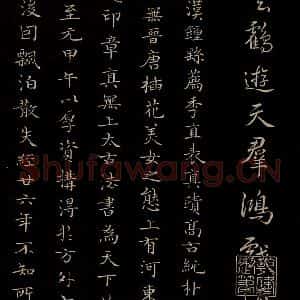 鶴遊天羣鴻戲
漢鍾繇薦季直表真蹟高古純樸
無晉唐插花美女態上有河東
印章真無上太古法書為天下
至元甲午以厚資購得於方外
後因飄泊散失經廿六年不知所
Shufawang.CN